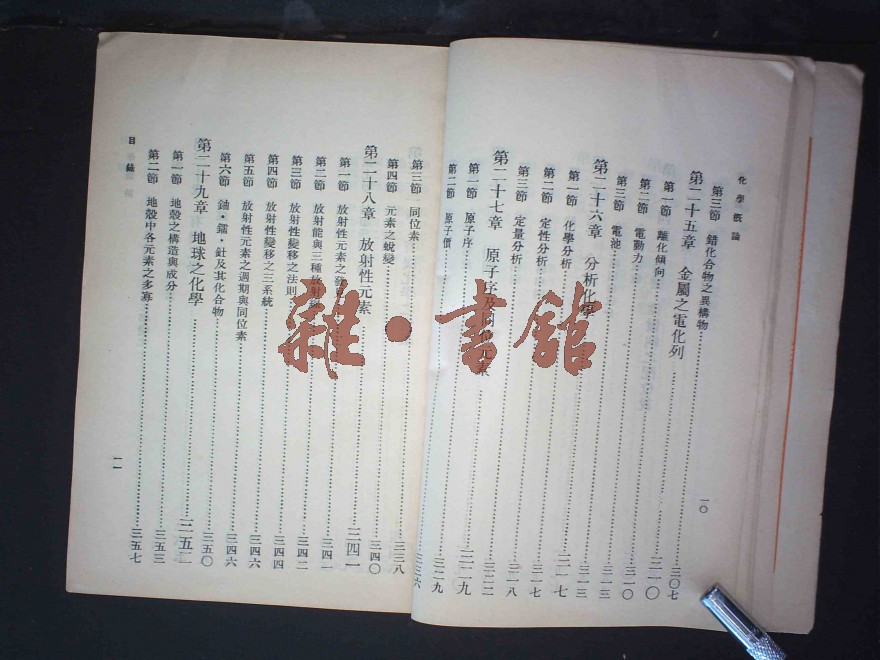 化學概論
第三節 錯化合物之異構物
第二十五章 金屬之電化列 三〇七
第一節 離化傾向
第二節 電動力
第三節 電池
第二十六章 分析化學
第一節 化學分析
第二節 定性分析
第三節 定量分析
第二十七章 原子序及同位元素
第一節 原子序
第二節 原子價
一〇
第三節 同位素
第四節 元素之蛻變 三四〇
第二十八章 放射性元素 三四一
第一節 放射性元素之發
第二節 放射能與三種放射 三四二
第三節 放射性變移之法則
第四節 放射性變移之三系統 三四四
第五節 放射性元素之週期與同位素 三四六
第六節 鈾·鐳·釷及其化合物 三四六
第二十九章 地球之化學
第一節 地殼之構造與成分 三五三
第二節 地殼中各元素之多寡 三五七
目錄
一一
雜·書館